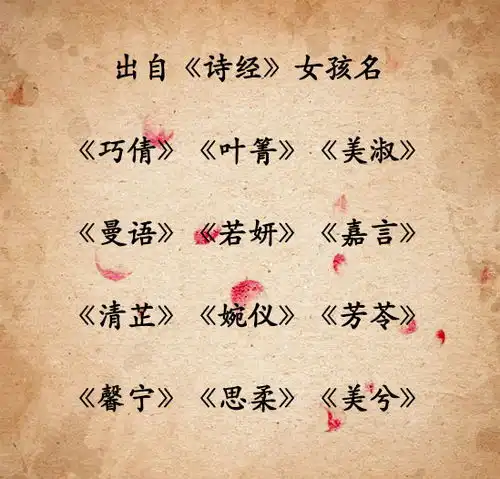 出自《诗经》女孩名
《巧倩》《叶箐》《美淑》
《曼语》《若妍》《嘉言》
《清芷》《婉仪》《芳苓》
《馨宁》《思柔》《美兮》